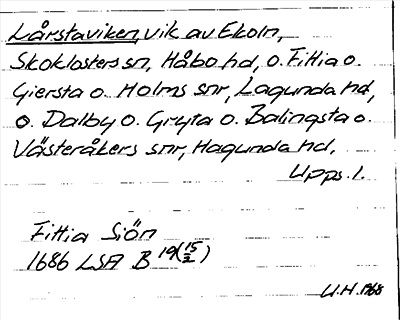 Lårstaviken, vik av Ekoln,
Skoklosters sn, Håbo hd, o. Fittia o.
Giersta o. Holms snr, Lagunda hd,
o. Dalby o. Gryta o. Balingsta o.
Västeråkers snr, Hagunda hd,
Upps. l.
Fittia Siön
1686 LSA B 19 (15/2)
U.H. 1968